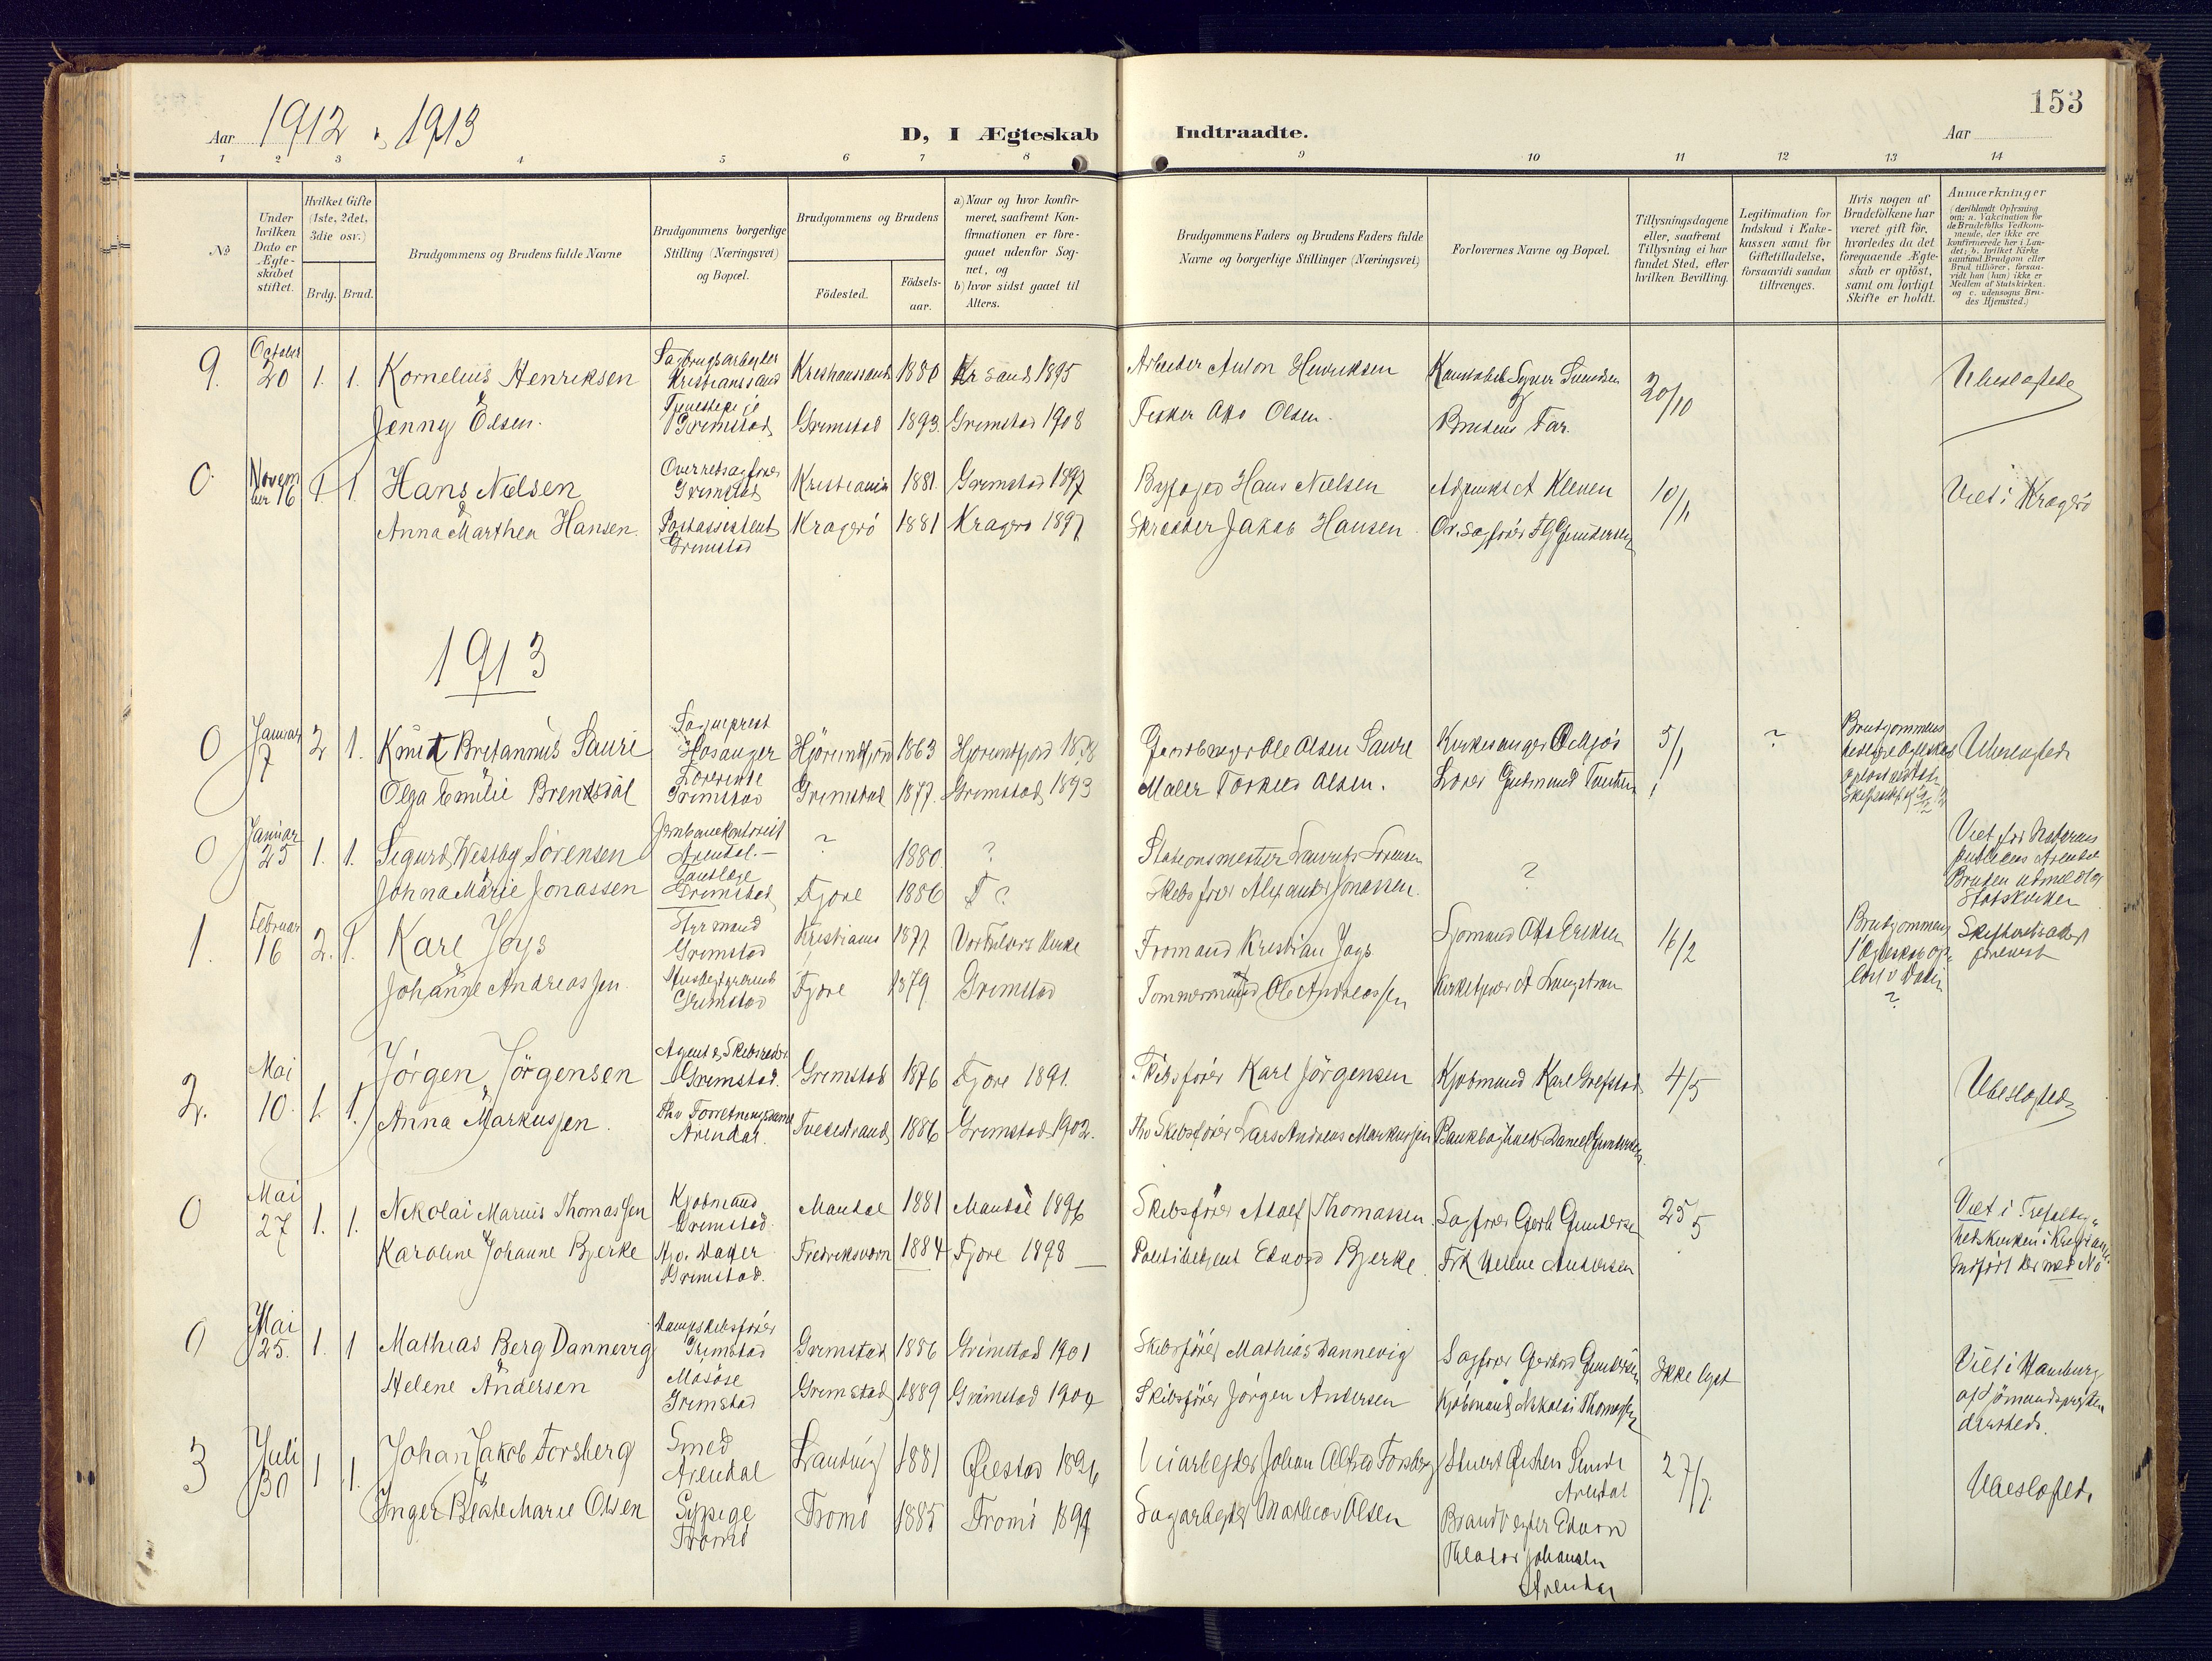 153
Aar 1912 & 1913
D, I Ægteskab Indtraadte.
Aar
1 2 3 4 5 6 7 8 9 10 11 12 13 14
No
Under hvilken Dato er Ægteskabet stiftet.
Hvilket Gifte (1ste, 2det, 3die osv.)
Brdg. Brud.
Brudgommens og Brudens fulde Navne
Brudgommens borgerlige Stilling (Næringsvei) og Bopæl.
Brudgommens og Brudens
Fødested.
Fødselsaar.
a) Naar og hvor konfirmeret, saafremt Konfirmationen er foregaaet udenfor Sognet, og
b) hvor sidst gaaet til Alters.
Brudgommens Faders og Brudens Faders fulde Navne og borgerlige Stillinger (Næringsvei)
Forlovernes Navne og Bopæl.
Tillysningsdagene eller, saafremt Tillysning ei har fundet Sted, efter hvilken Bevilling.
Legitimation for Indskud i Enkekassen samt for Giftetilladelse, forsaavidt saadan tiltrænges.
Hvis nogen af Brudefolkene har været gift før, hvorledes da det foregaaende Ægteskab er opløst, samt om lovligt Skifte er holdt.
Anmærkninger (deriblandt Oplysning om: a. Vakcination for de Brudefolks Vedkommende, der ikke ere konfirmerede her i Landet; b. hvilket Kirkesamfund Brudgom eller Brud tilhører, forsaavidt han (hun) ikke er Medlem af Statskirken. og c. udensogns Brudes Hjemsted.)
9. October 20 1. 1. Kornelius Henriksen Sagbrugsarbeider Kristianssand Kristianssand 1880 Kr sand 1895 Arbeider Anton Henriksen 20/10 Ubeslægtede
& Jenny Olsen. Grimstad Grimstad 1893. Grimstad 1908 Fisker Otto Olsen. Brudens Far.
0. November 16 1. 1. Hans Nielsen Overretsagfører Grimstad Kristiania 1881. Grimstad 1897 Byfoged Hans Nielsen Adjunkt A Kleven 10/11 Viet i Kragerö
& Anna Marthea Hansen. Postassistent Grimstad Kragerö 1881 Kragerö 1897 Skrædder Jakob Hansen Ov. Sagfører F G Gundersen
1913
0 Januar 7 2 1. Knut Bretannus Saure Sogneprest Hosanger Hjörundfjord 1863 Hjörundfjord Gaardbruger Ole Olsen Saure Kirkesanger 5/1 ? Brudgommens
& Olga Emilie Grimstad Grimstad 1877. Grimstad 1893 Maler Torkild Olsen. Lærer Gudmund
0 Januar 25 1. 1. Sigurd Westby Sörensen Jernbanekontorist Arendal. ? 1880. ? Stationsmester Laurits Sörensen ? Viet for Notarius publicus Arendal
& Johna Marie Jonassen Tandlæge Grimstad Fjære 1886 F ? Skibsfører Alexander Jonassen. Bruden udmeldt af Statskirken
1. Februar 16 2. 1. Karl Jays Styrmand Grimstad Kristiania 1877 Vor Frelsers Kirke Kristian Jays Sjømand Otto Eriksen 16/2 Brudgommens 1 Ægteskab opløst v Død ? Skifteattest forevist
& Johanne Andreassen. Grimstad Fjære 1879 Grimstad Tømmermand Ole Andreassen Kirketjener A
2. Mai 10. 1. 1. Jörgen Jörgensen Agent & Skibsreder Grimstad. Grimstad 1876 Fjære 1891. Skibsfører Karl Jörgensen Kjøbmand Karl Grefstad 4/5 Ubeslægtede
& Anna Markussen. Arendal. Tvedestrand 1886 Grimstad 1902. Skibsfører Lars Andreas Markussen Daniel Gundersen
0 Mai 27 1. 1. Nikolai Marius Thomassen Kjøbmand Grimstad. Mandal 1881 Mandal 1896 Skibsfører Adolf Thomassen. Sagfører Gerh Gundersen 25 5 Viet i Trefoldighedskirken i Kristiania. Indført her med No
Karoline Johanne Bjerke Grimstad. Fredriksværn 1884 Fjære 1898 Politibetjent Edvard Bjerke. Frk Helene Andersen
0 Mai 25. 1. 1 Mathias Berg Dannevig Dampskibsfører Grimstad Grimstad 1886 Grimstad 1901 Skibsfører Mathias Dannevig Sagfører Gerhard Gundersen Ikke lyst Viet i Hamburg af Sömandspresten dersteds.
& Helene Andersen Grimstad Grimstad 1889 Grimstad 1904 Skibsfører Jörgen Andersen Kjøbmand Nikolai Thomassen
3 Juli 30 1 1. Johan Jakob Forsberg Smed Arendal Landvig 1881 Øiestad 1896 Veiarbeider Johan Alfred Forsberg Arendal 27/7. Ubeslægtede.
& Inger Beate Marie Olsen Sypige Tromö Tromö 1885 Tromö 1899 Sagarbeider Mathias Olsen Edvard Johansen Arendal